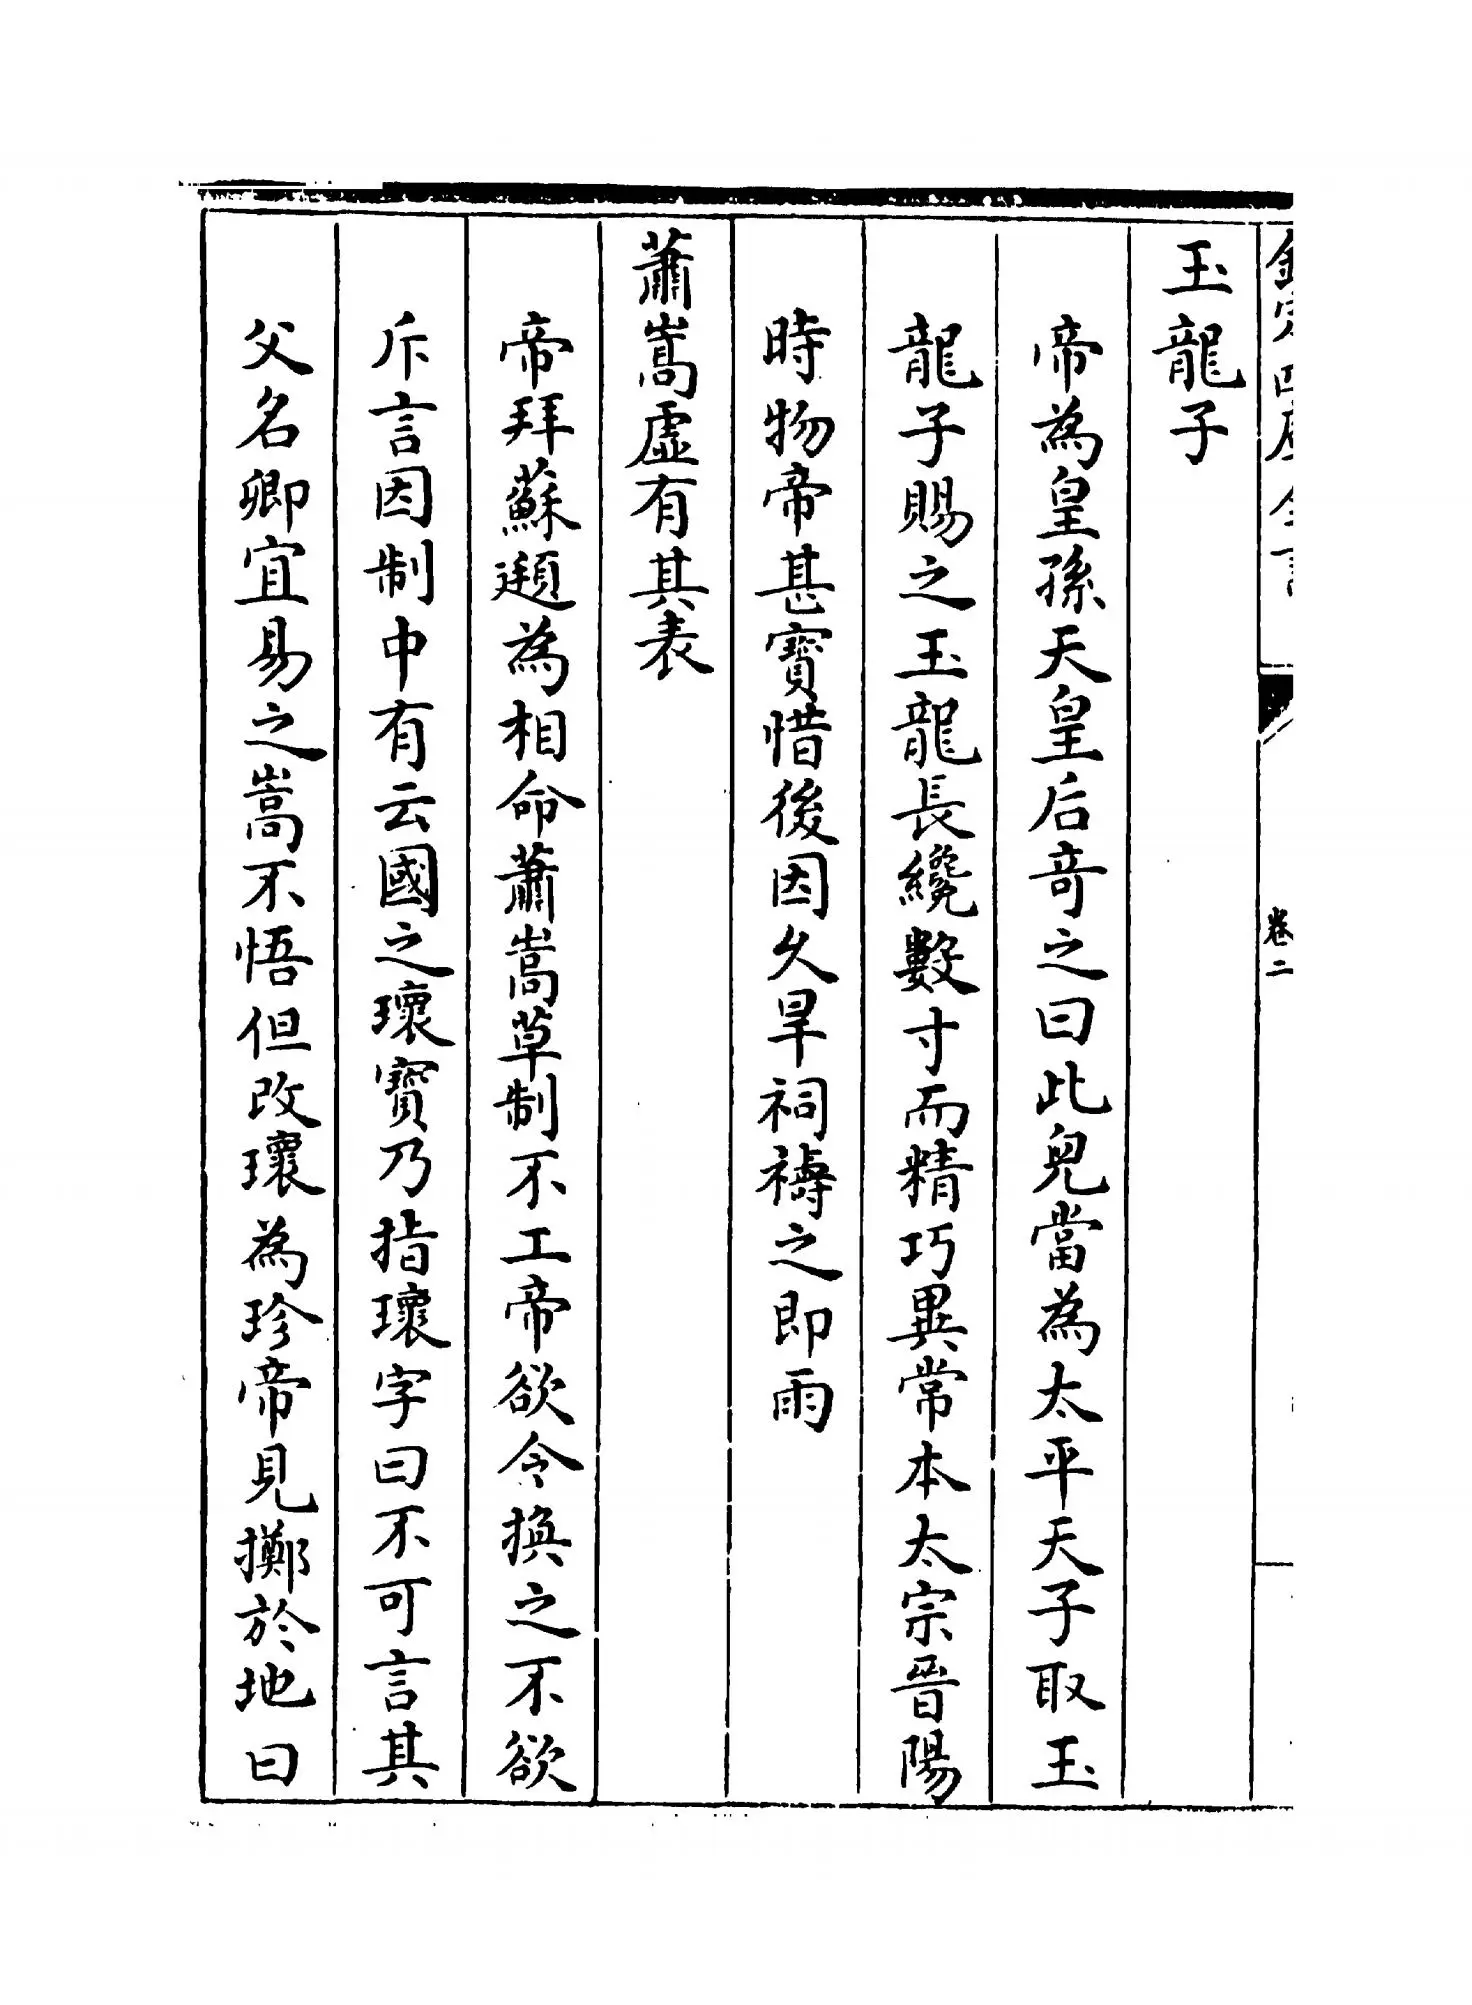 欽定四庫全書
卷二
玉龍子
帝為皇孫天皇后竒之曰此兒當為太平天子取玉
龍子賜之玉龍長纔數寸而精巧異常本太宗晉陽
時物帝甚寶惜後因久旱祠禱之即雨
蕭嵩虛有其表
帝拜蘇頲為相命蕭嵩草制不工帝欲令換之不欲
斥言因制中有云國之瓌寶乃指瓌字曰不可言其
父名卿宜易之嵩不悟但改瓌為珍帝見擲於地曰